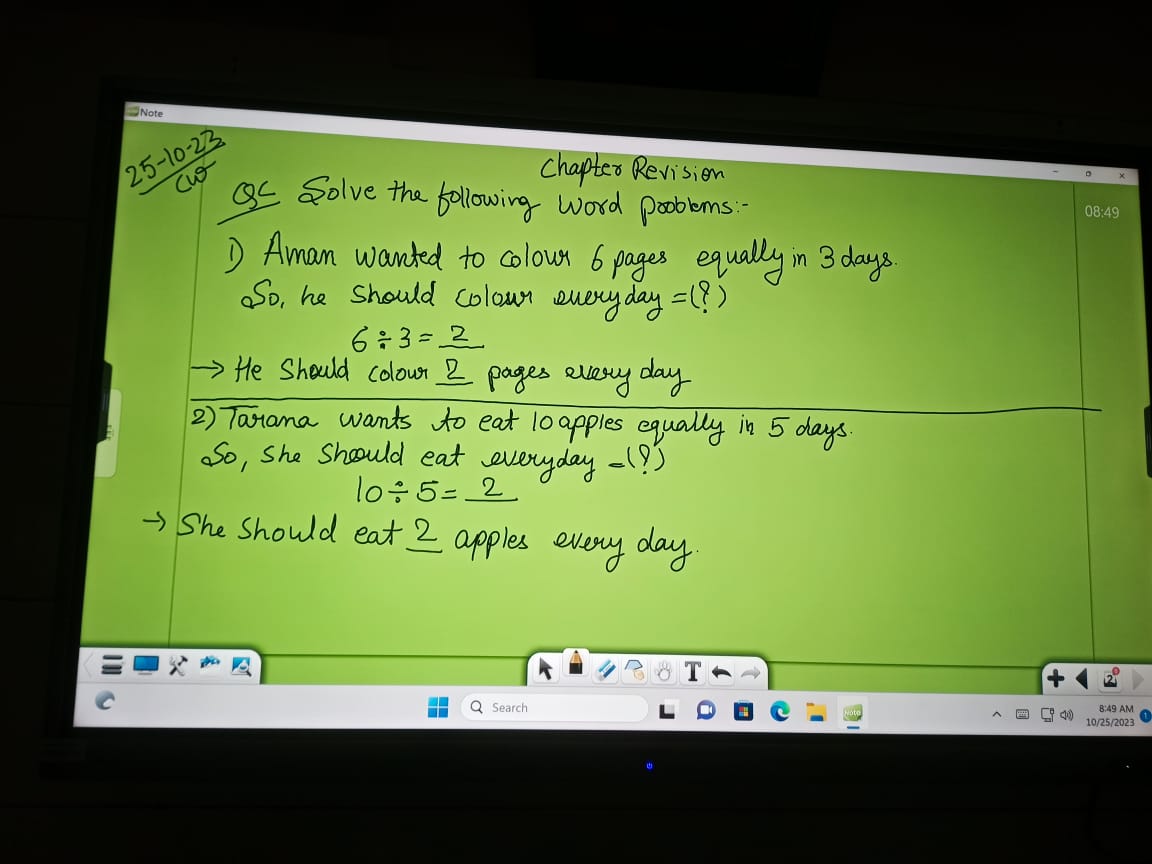 Note
25-10-23
CW
Chapter Revision
08:49
QC Solve the following word problems:-
1) Aman wanted to colour 6 pages equally in 3 days.
So, he should colour everyday =(?)
6 ÷ 3 = 2
→ He should colour 2 pages every day
2) Tarana wants to eat 10 apples equally in 5 days.
So, she should eat everyday =(?)
10 ÷ 5 = 2
→ She should eat 2 apples every day.
T
2
Search
Note
8:49 AM
10/25/2023
1